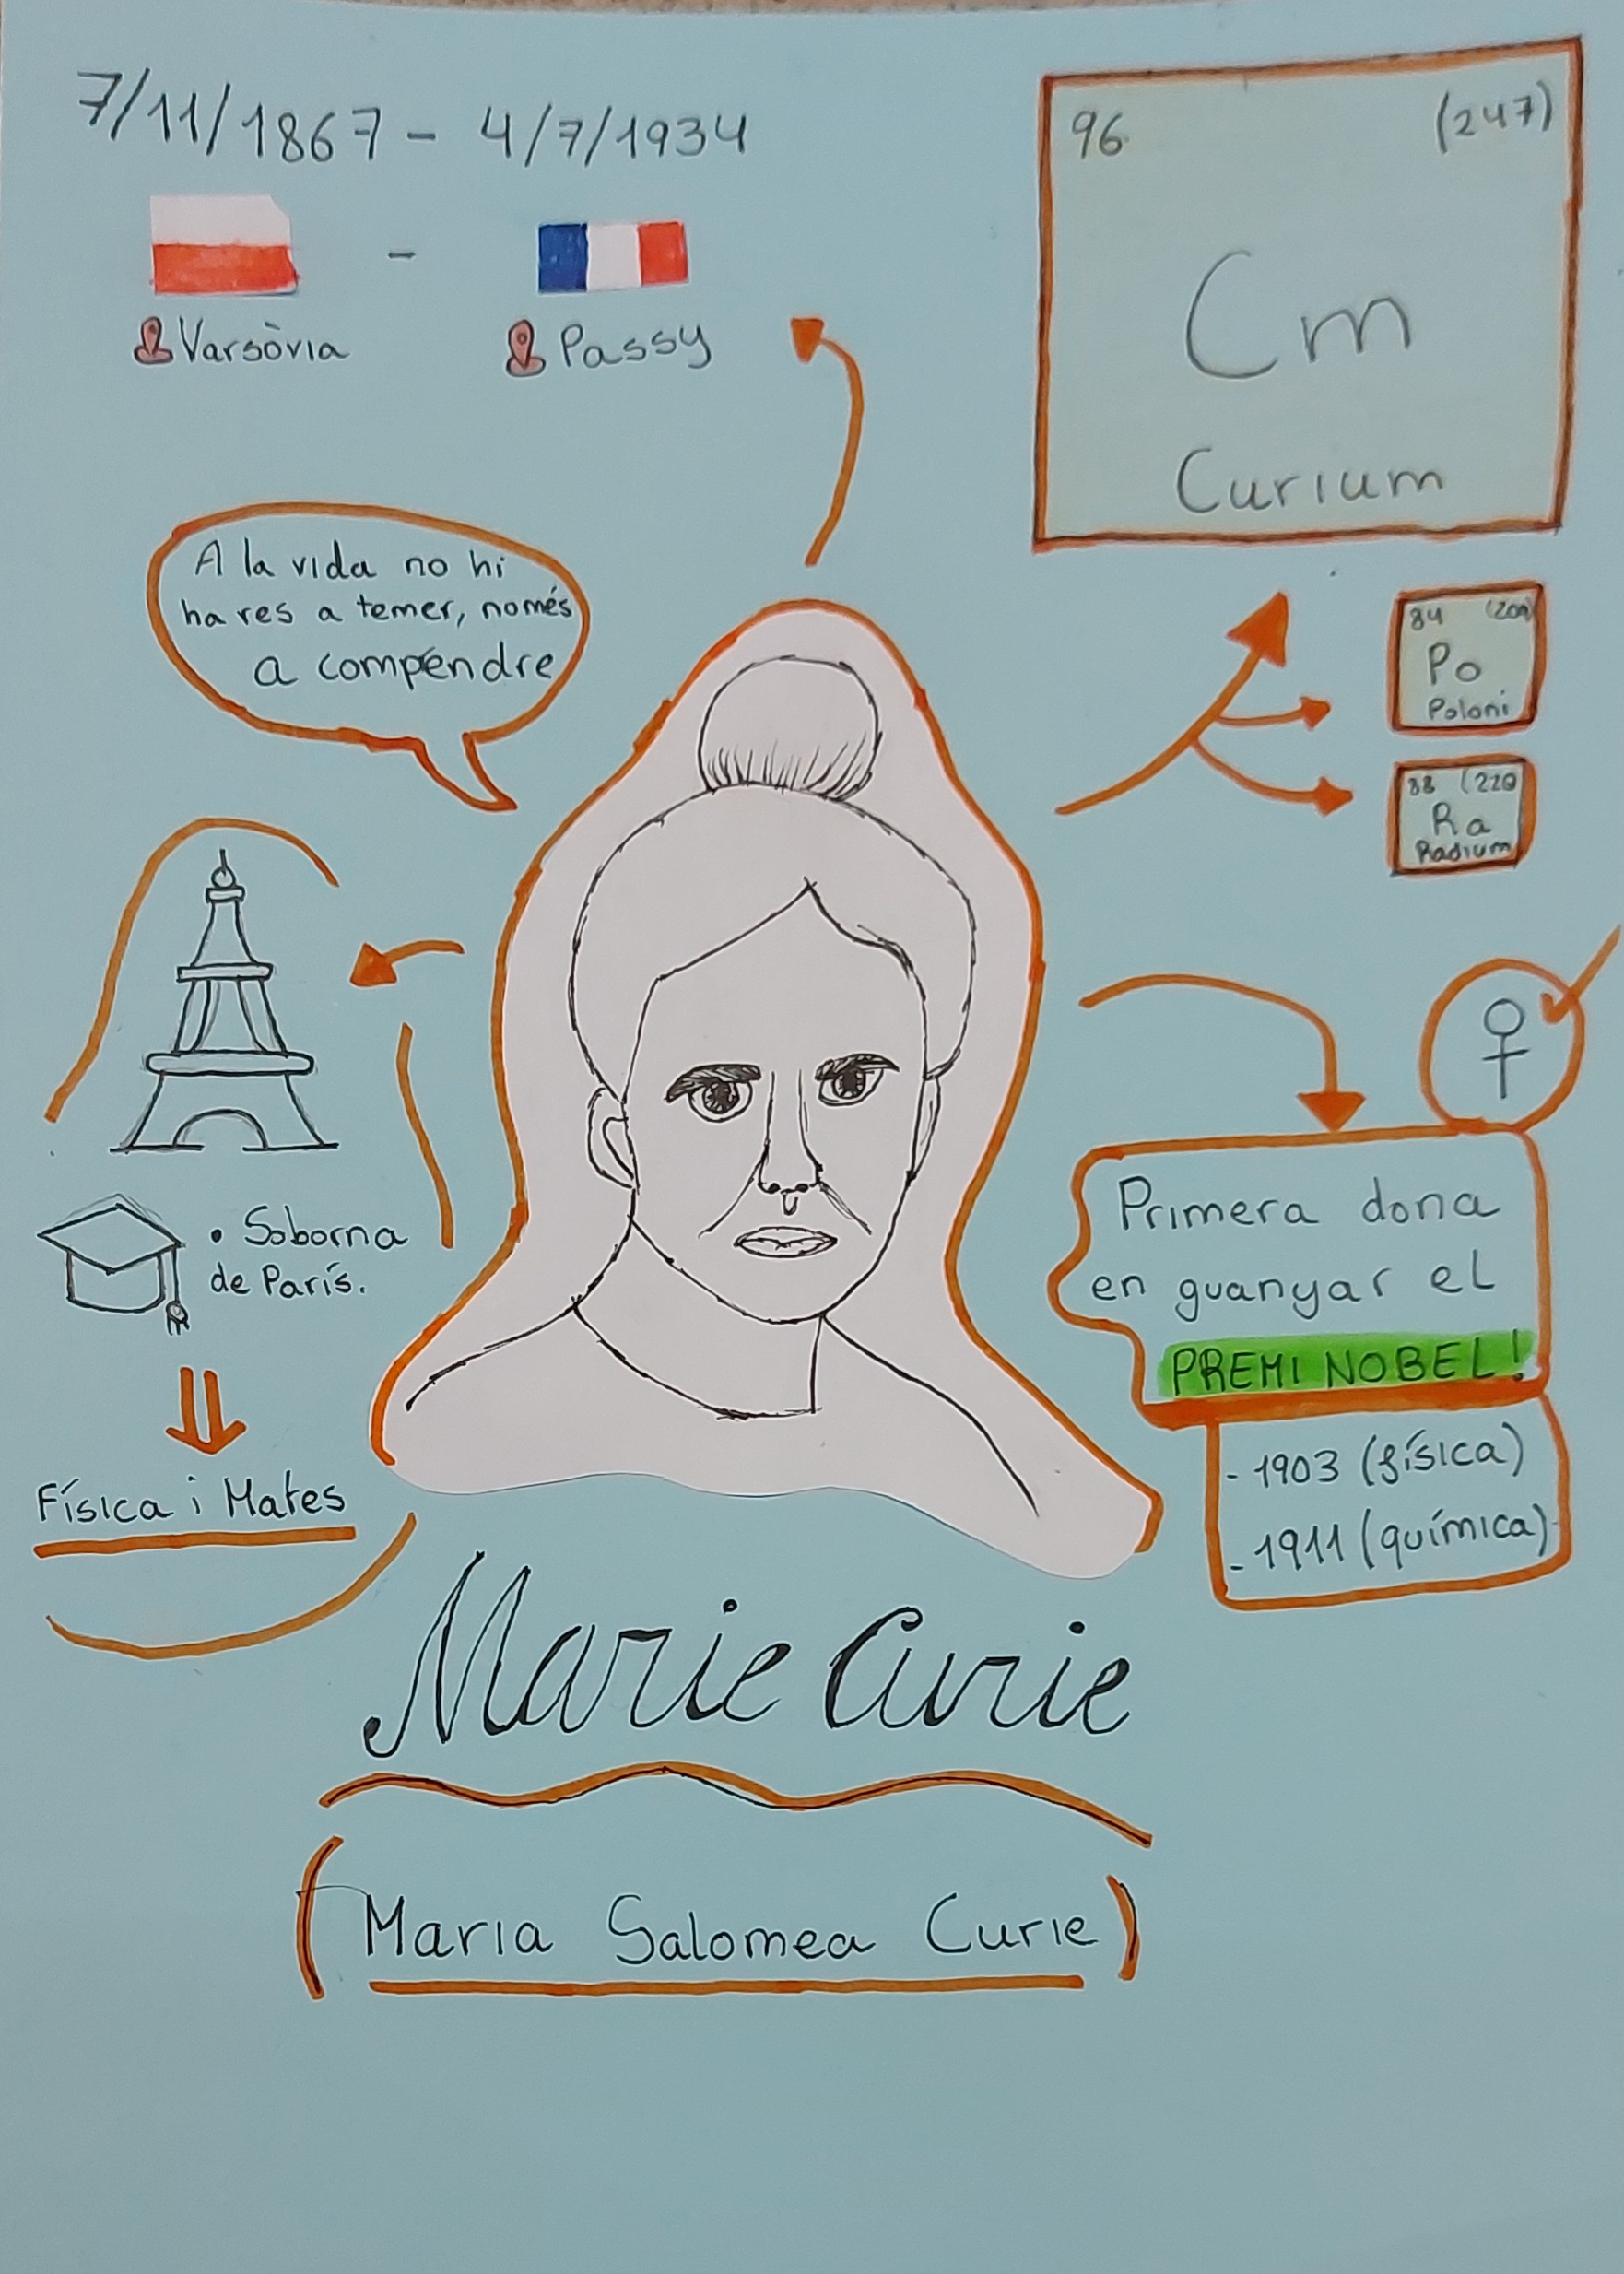 7/11/1867 - 4/7/1934
-
Varsòvia
Passy
96 (247)
Cm
Curium
A la vida no hi
ha res a temer, només
a compendre
84 (209)
Po
Poloni
88 (226
Ra
Radium
• Soborna
de París.
Física i Mates
Primera dona
en guanyar el
PREMI NOBEL!
- 1903 (física)
- 1911 (química)
Marie Curie
(Maria Salomea Curie)